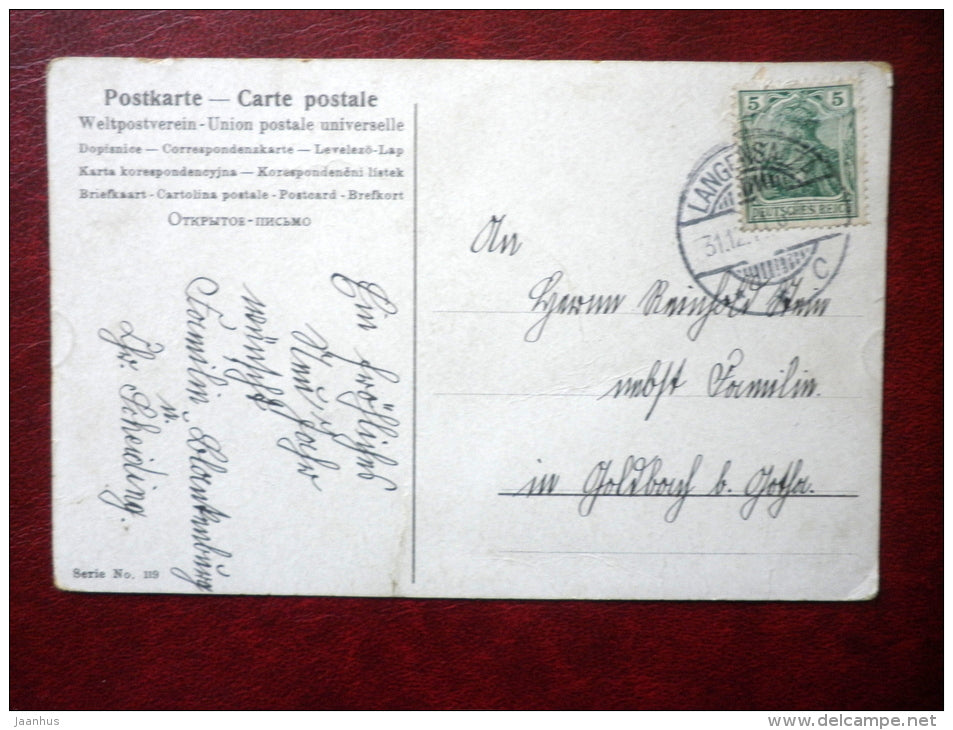 Postkarte — Carte postale
Weltpostverein - Union postale universelle
Dopisnice — Correspondenzkarte — Levelező-Lap
Karta korespondencyjna — Korespondenční lístek
Briefkaart - Cartolina postale - Postcard - Brefkort
Открытое-письмо
Ein fröhliches
Neujahr
wünscht
Familie Blankenburg
u.
Chr. Scheiding.
Serie No. 119
5 5
DEUTSCHES REICH
LANGENSALZA
31.12.
C
An
Herrn Reinhold Stein
nebst Familie.
in Goldbach b. Gotha.
jaanhus
www.delcampe.net